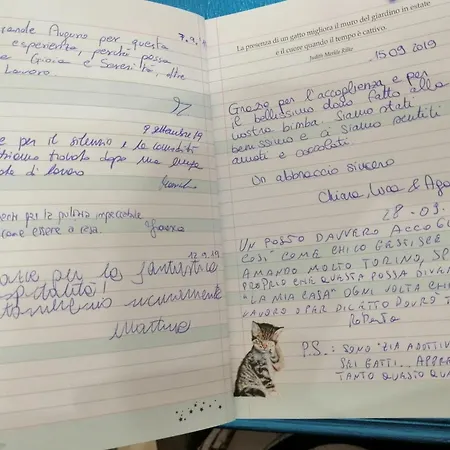 grande Auguro per questa
7.9.19
esperienza, perché possa
Gioia e Serenità, oltre
Lavoro.
9 settembre 19
per il silenzio e la
trovato dopo una lunga
di lavoro
per la pulizia impeccabile
come essere a casa.
12.9.19
per la fantastica
ospitalità!
Torneremo sicuramente
Martina
La presenza di un gatto migliora il muro del giardino in estate
e il cuore quando il tempo è cattivo.
Judith Merkle Riley
15.09.2019
Grazie per l'accoglienza e per
il bellissimo dono fatto alla
nostra bimba. Siamo stati
benissimo e ci siamo sentiti
amati e coccolati.
Un abbraccio sincero
Chiara, Luca & Aga
28-09.
UN POSTO DAVVERO ACCOG
COSÌ COME CHI LO GESTISCE
AMANDO MOLTO TORINO, SP
PROPRIO CHE QUESTA POSSA DIVEN
"LA MIA CASA" OGNI VOLTA CHE
LAVORO O PER DILETTO DOVRÒ T
ROBERTA
P.S.: SONO "ZIA ADOTTIV
SEI GATTI... APPRE
TANTO QUESTO QUA